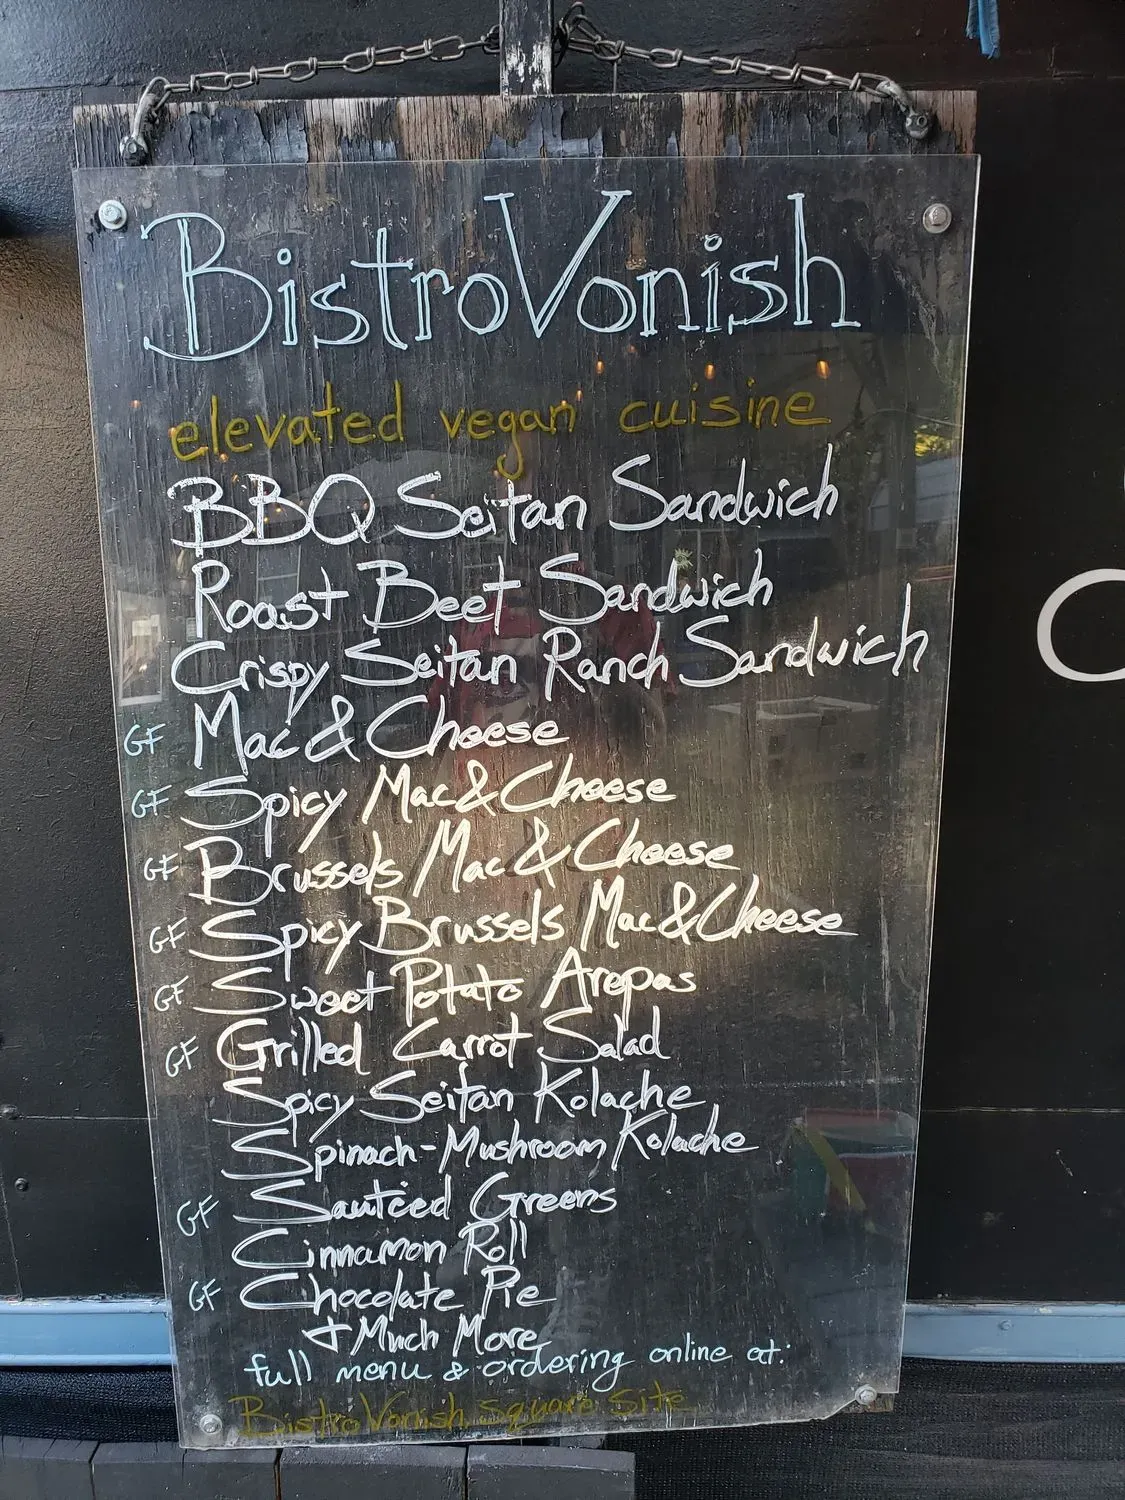 BistroVonish
elevated vegan cuisine
BBQ Seitan Sandwich
Roast Beet Sandwich
Crispy Seitan Ranch Sandwich
GF Mac & Cheese
GF Spicy Mac & Cheese
GF Brussels Mac & Cheese
GF Spicy Brussels Mac & Cheese
GF Sweet Potato Arepas
GF Grilled Carrot Salad
Spicy Seitan Kolache
Spinach-Mushroom Kolache
GF Sautéed Greens
Cinnamon Roll
GF Chocolate Pie
+ Much More
full menu & ordering online at:
BistroVonish.Square.Site